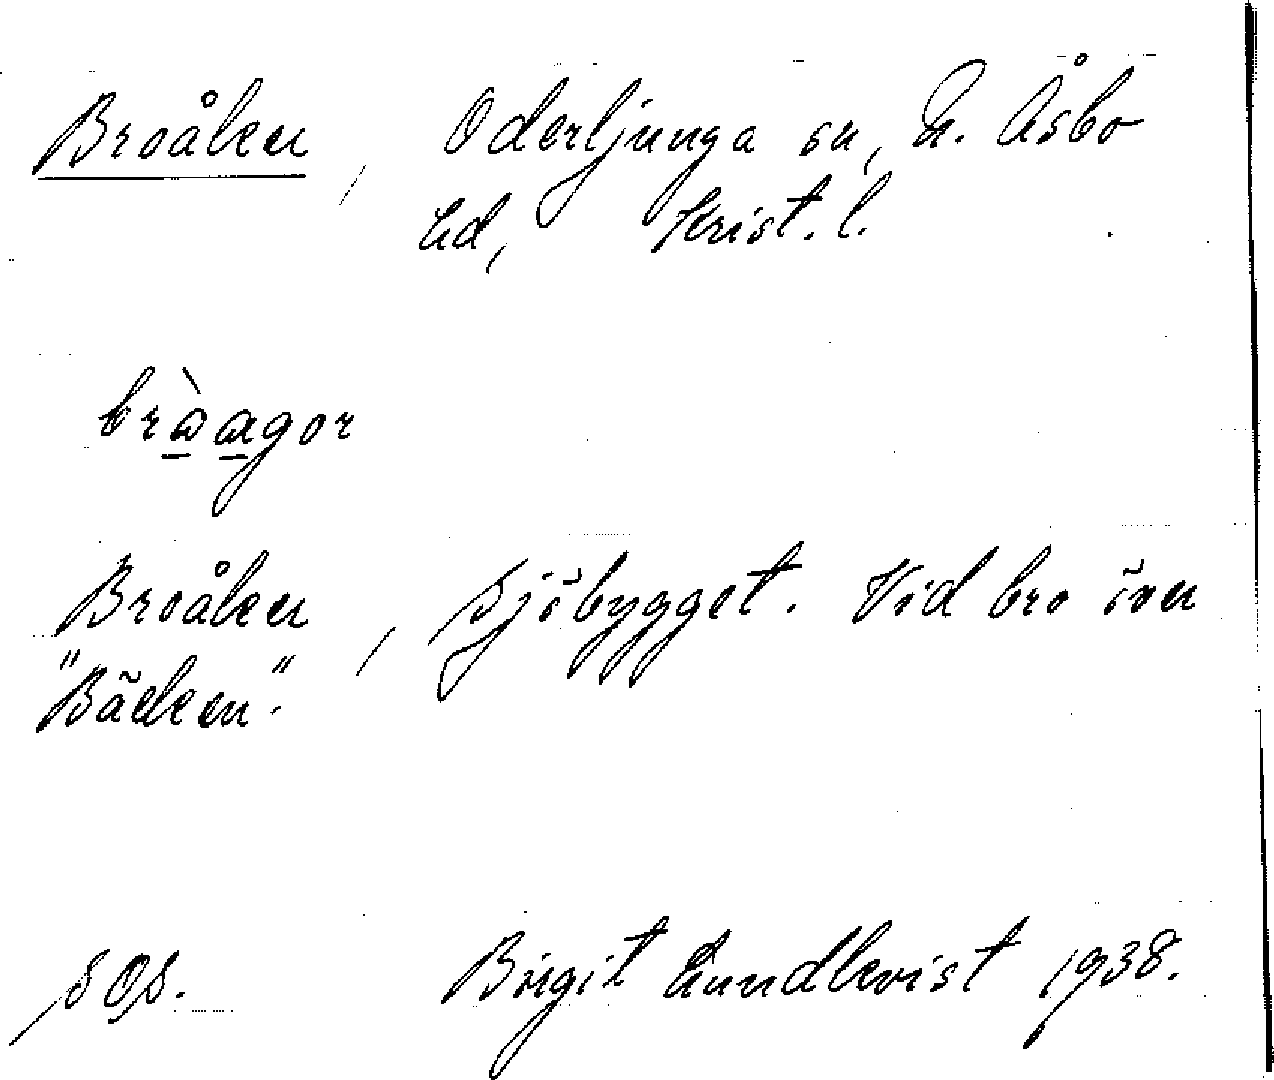 Broåker, Oderljunga sn, N. Åsbo
hd, Krist. l.
bròågor
Broåker, Sjöbygget. Vid bro över
"Bäcken".
SOS. Birgit Lundkvist 1938.